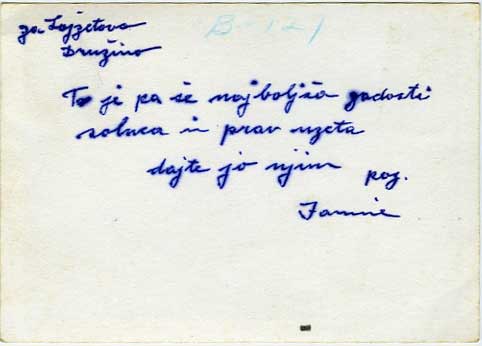 za Lojzetova
Družino
B-121
To je pa še najboljša zadosti
solnca in prav uzeta
dajte jo njim poz.